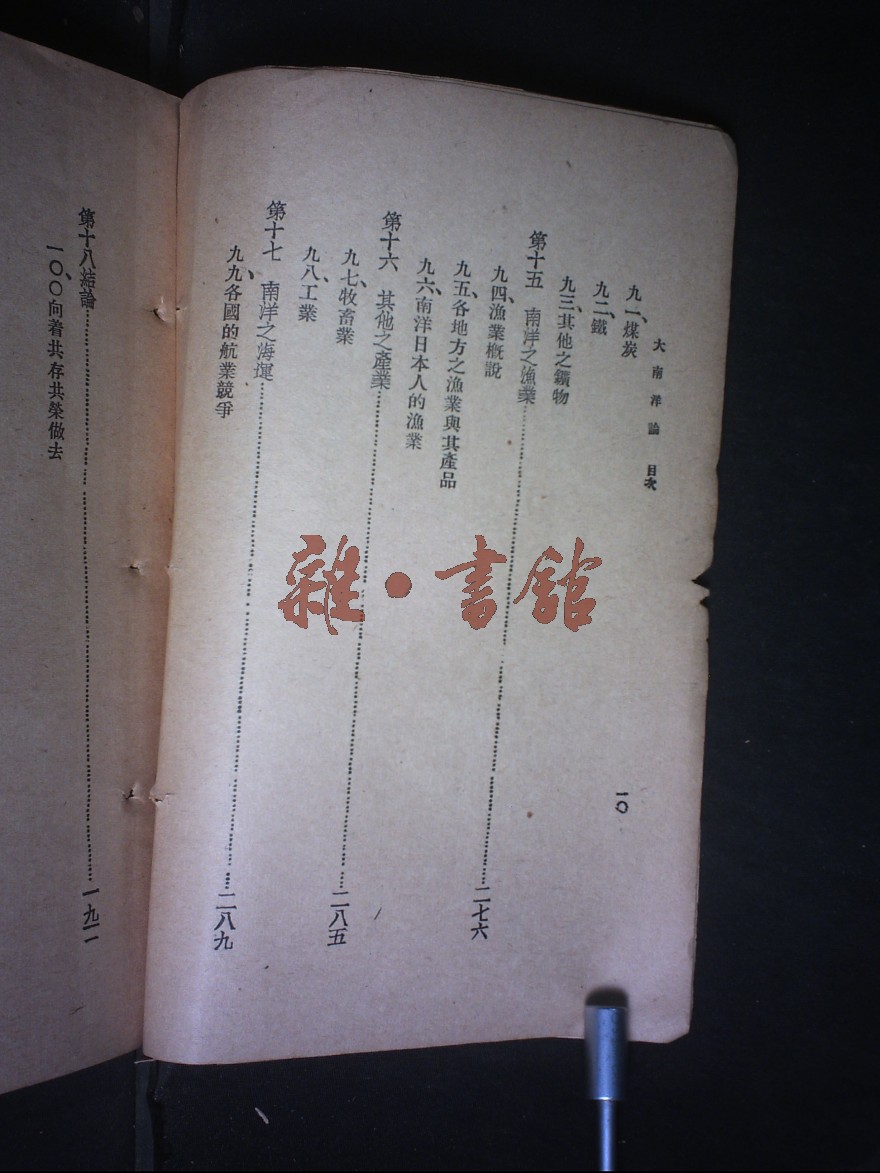 大南洋論 目次
一〇
九一、煤炭
九二、鐵
九三、其他之鑛物
第十五 南洋之漁業……二七六
九四、漁業槪說
九五、各地方之漁業與其產品
九六、南洋日本人的漁業
第十六 其他之產業……二八五
九七、牧畜業
九八、工業
第十七 南洋之海運……二八九
九九、各國的航業競爭
第十八結論……一九二
一〇〇、向着共存共榮做去
雜·書館